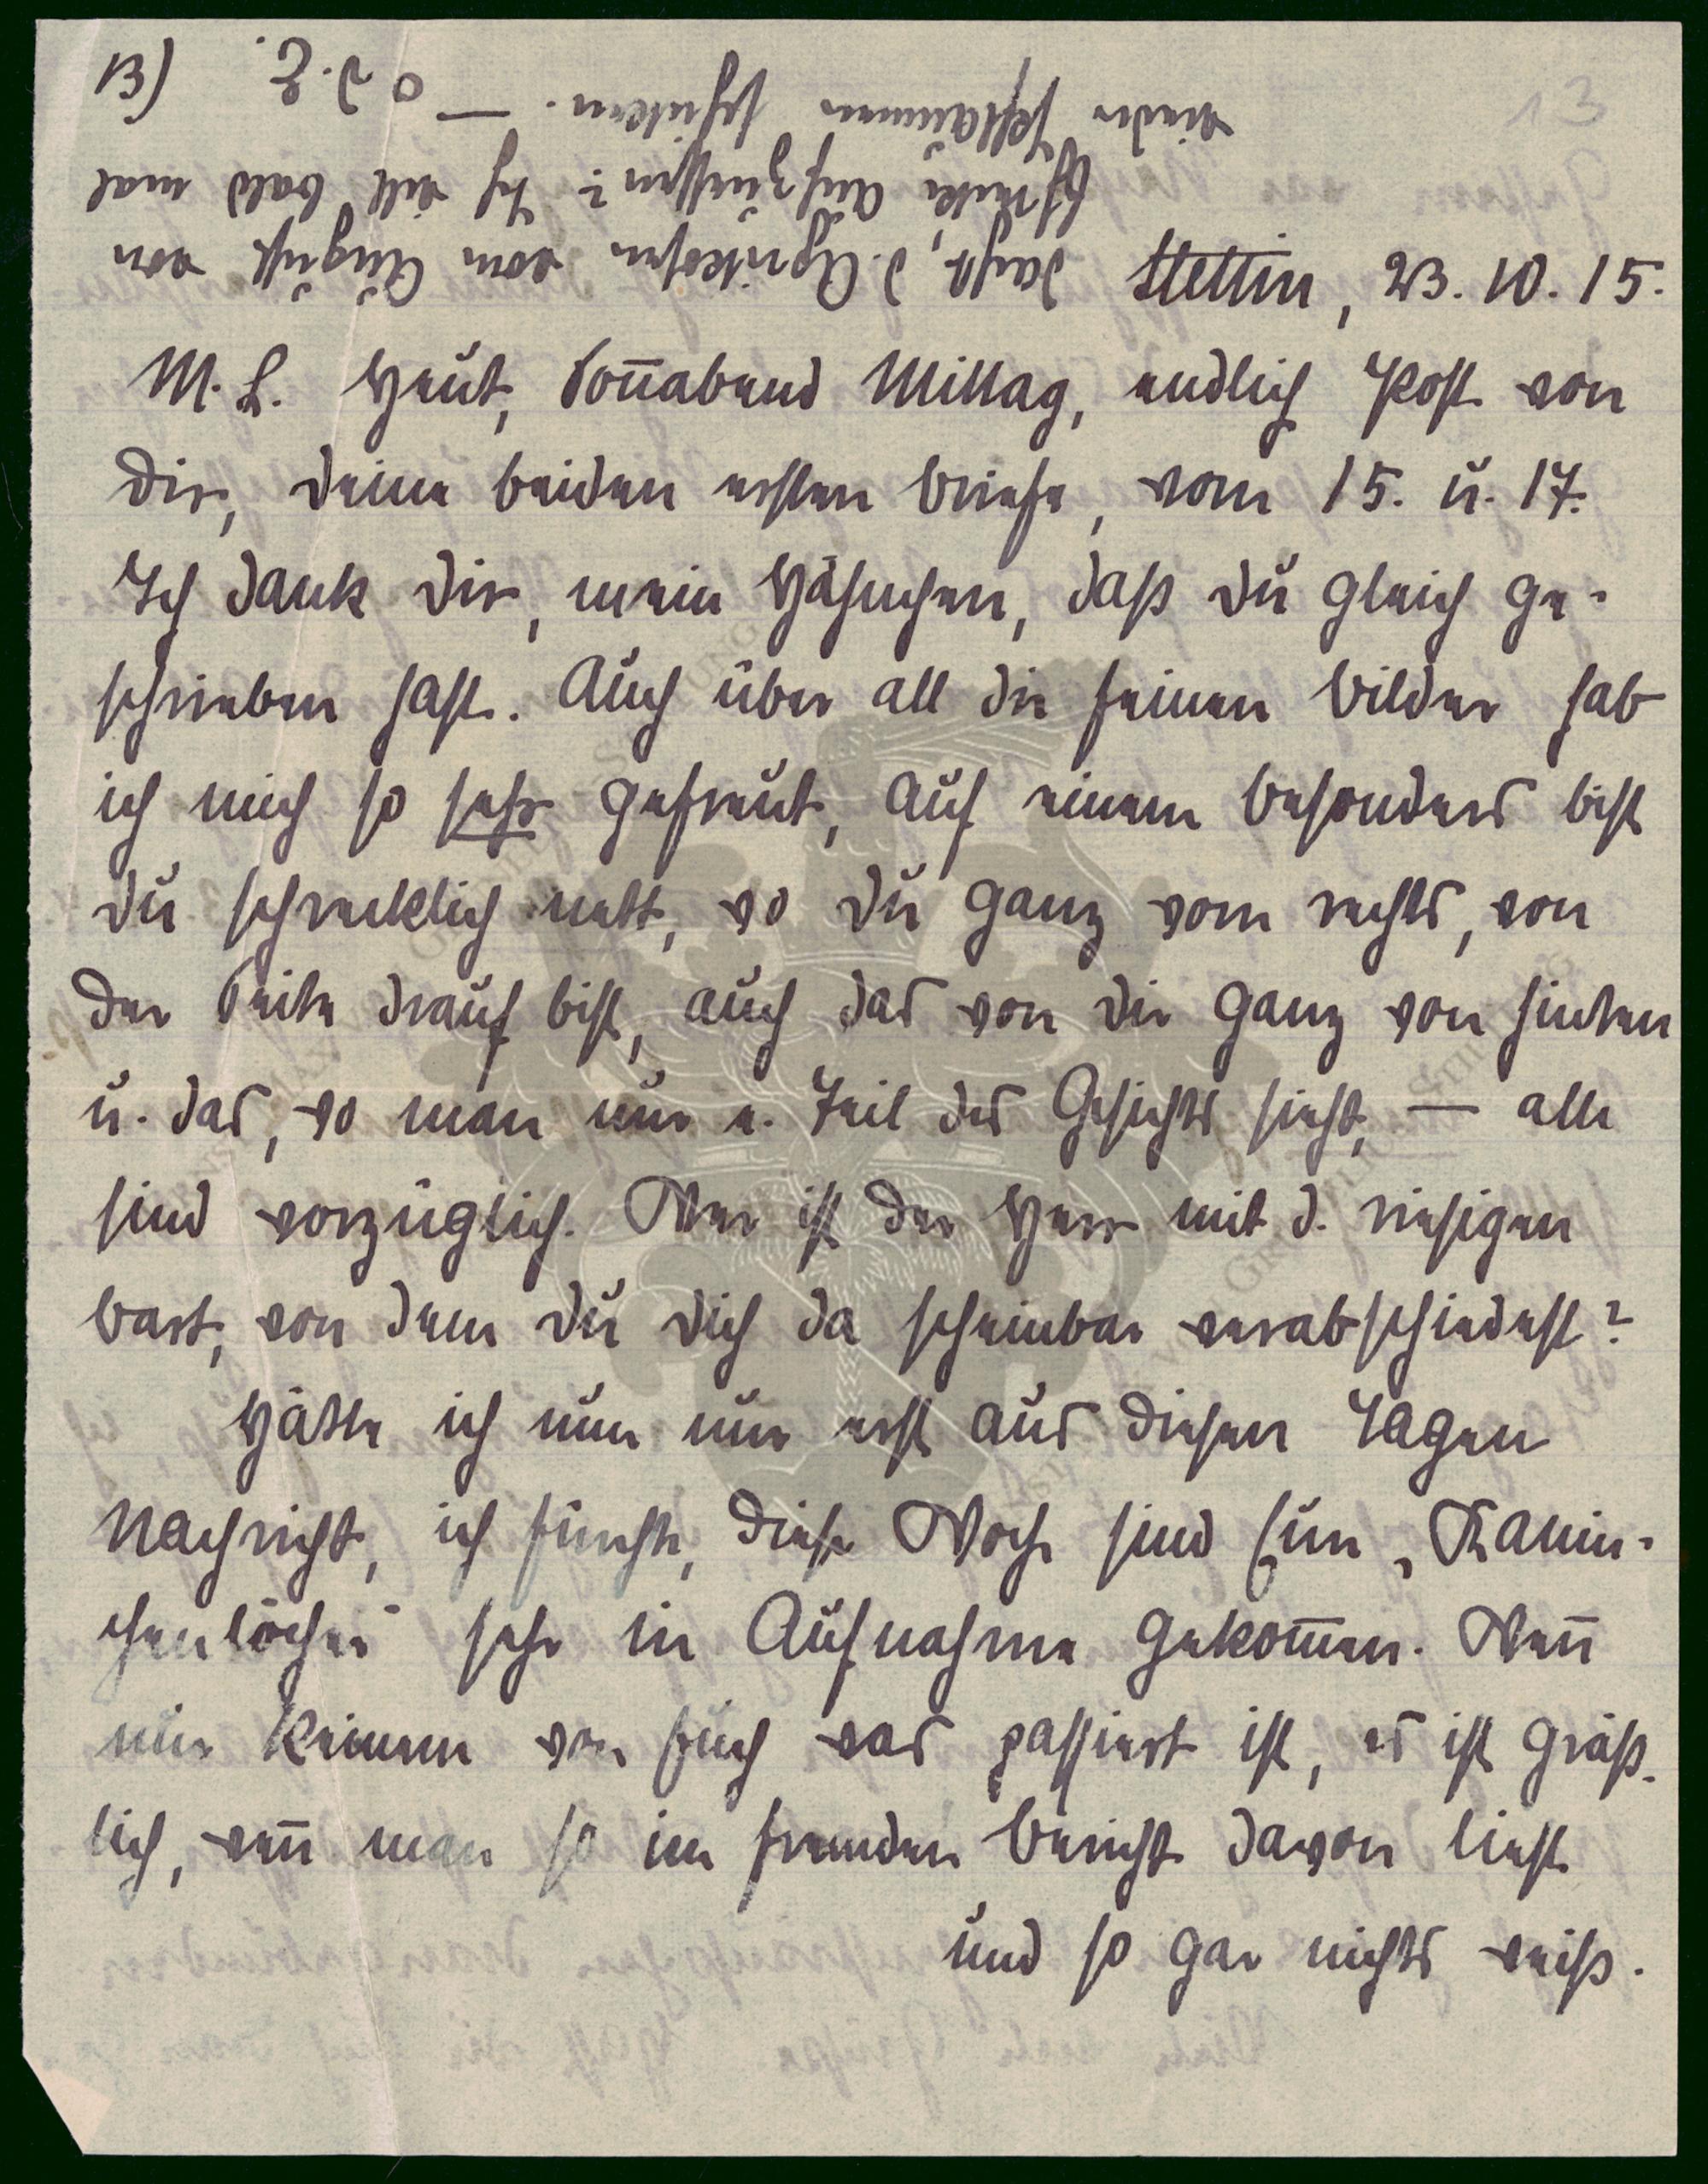 13) 13
Stettin, 23.10.15.
M. L. Heut, Soñabend Mittag, endlich Post von
Dir, Deine beiden ersten Briefe, vom 15. u. 17.
Ich dank Dir, mein Häsuchen, daß Du gleich ge-
schrieben hast. Auch über all die feinen Bilder hab
ich mich so sehr gefreut, auf einem besonders bist
Du schrecklich nett, wo Du ganz vorn rechts, von
der Seite drauf bist, auch das von Dir ganz von hinten
u. das, wo man nur e. Teil des Gesichts sieht, — alle
sind vorzüglich. Wer ist der Herr mit d. riesigen
Bart, von dem Du Dich da scheinbar verabschiedest?
Hätte ich nun nur erst aus diesen Tagen
Nachricht, ich fürchte, diese Woche sind Eure „Kanin-
chenlöcher" sehr in Aufnahme gekom̄en. Weñ
nur Keinem von Euch was passiert ist, es ist gräß-
lich, weñ man so im fremden Bericht davon liest
und so gar nichts weiß.
Darfst d. Aprikosen vom August von
aufzuessen? Ich will bald mal
wieder schicken. — O d. E.